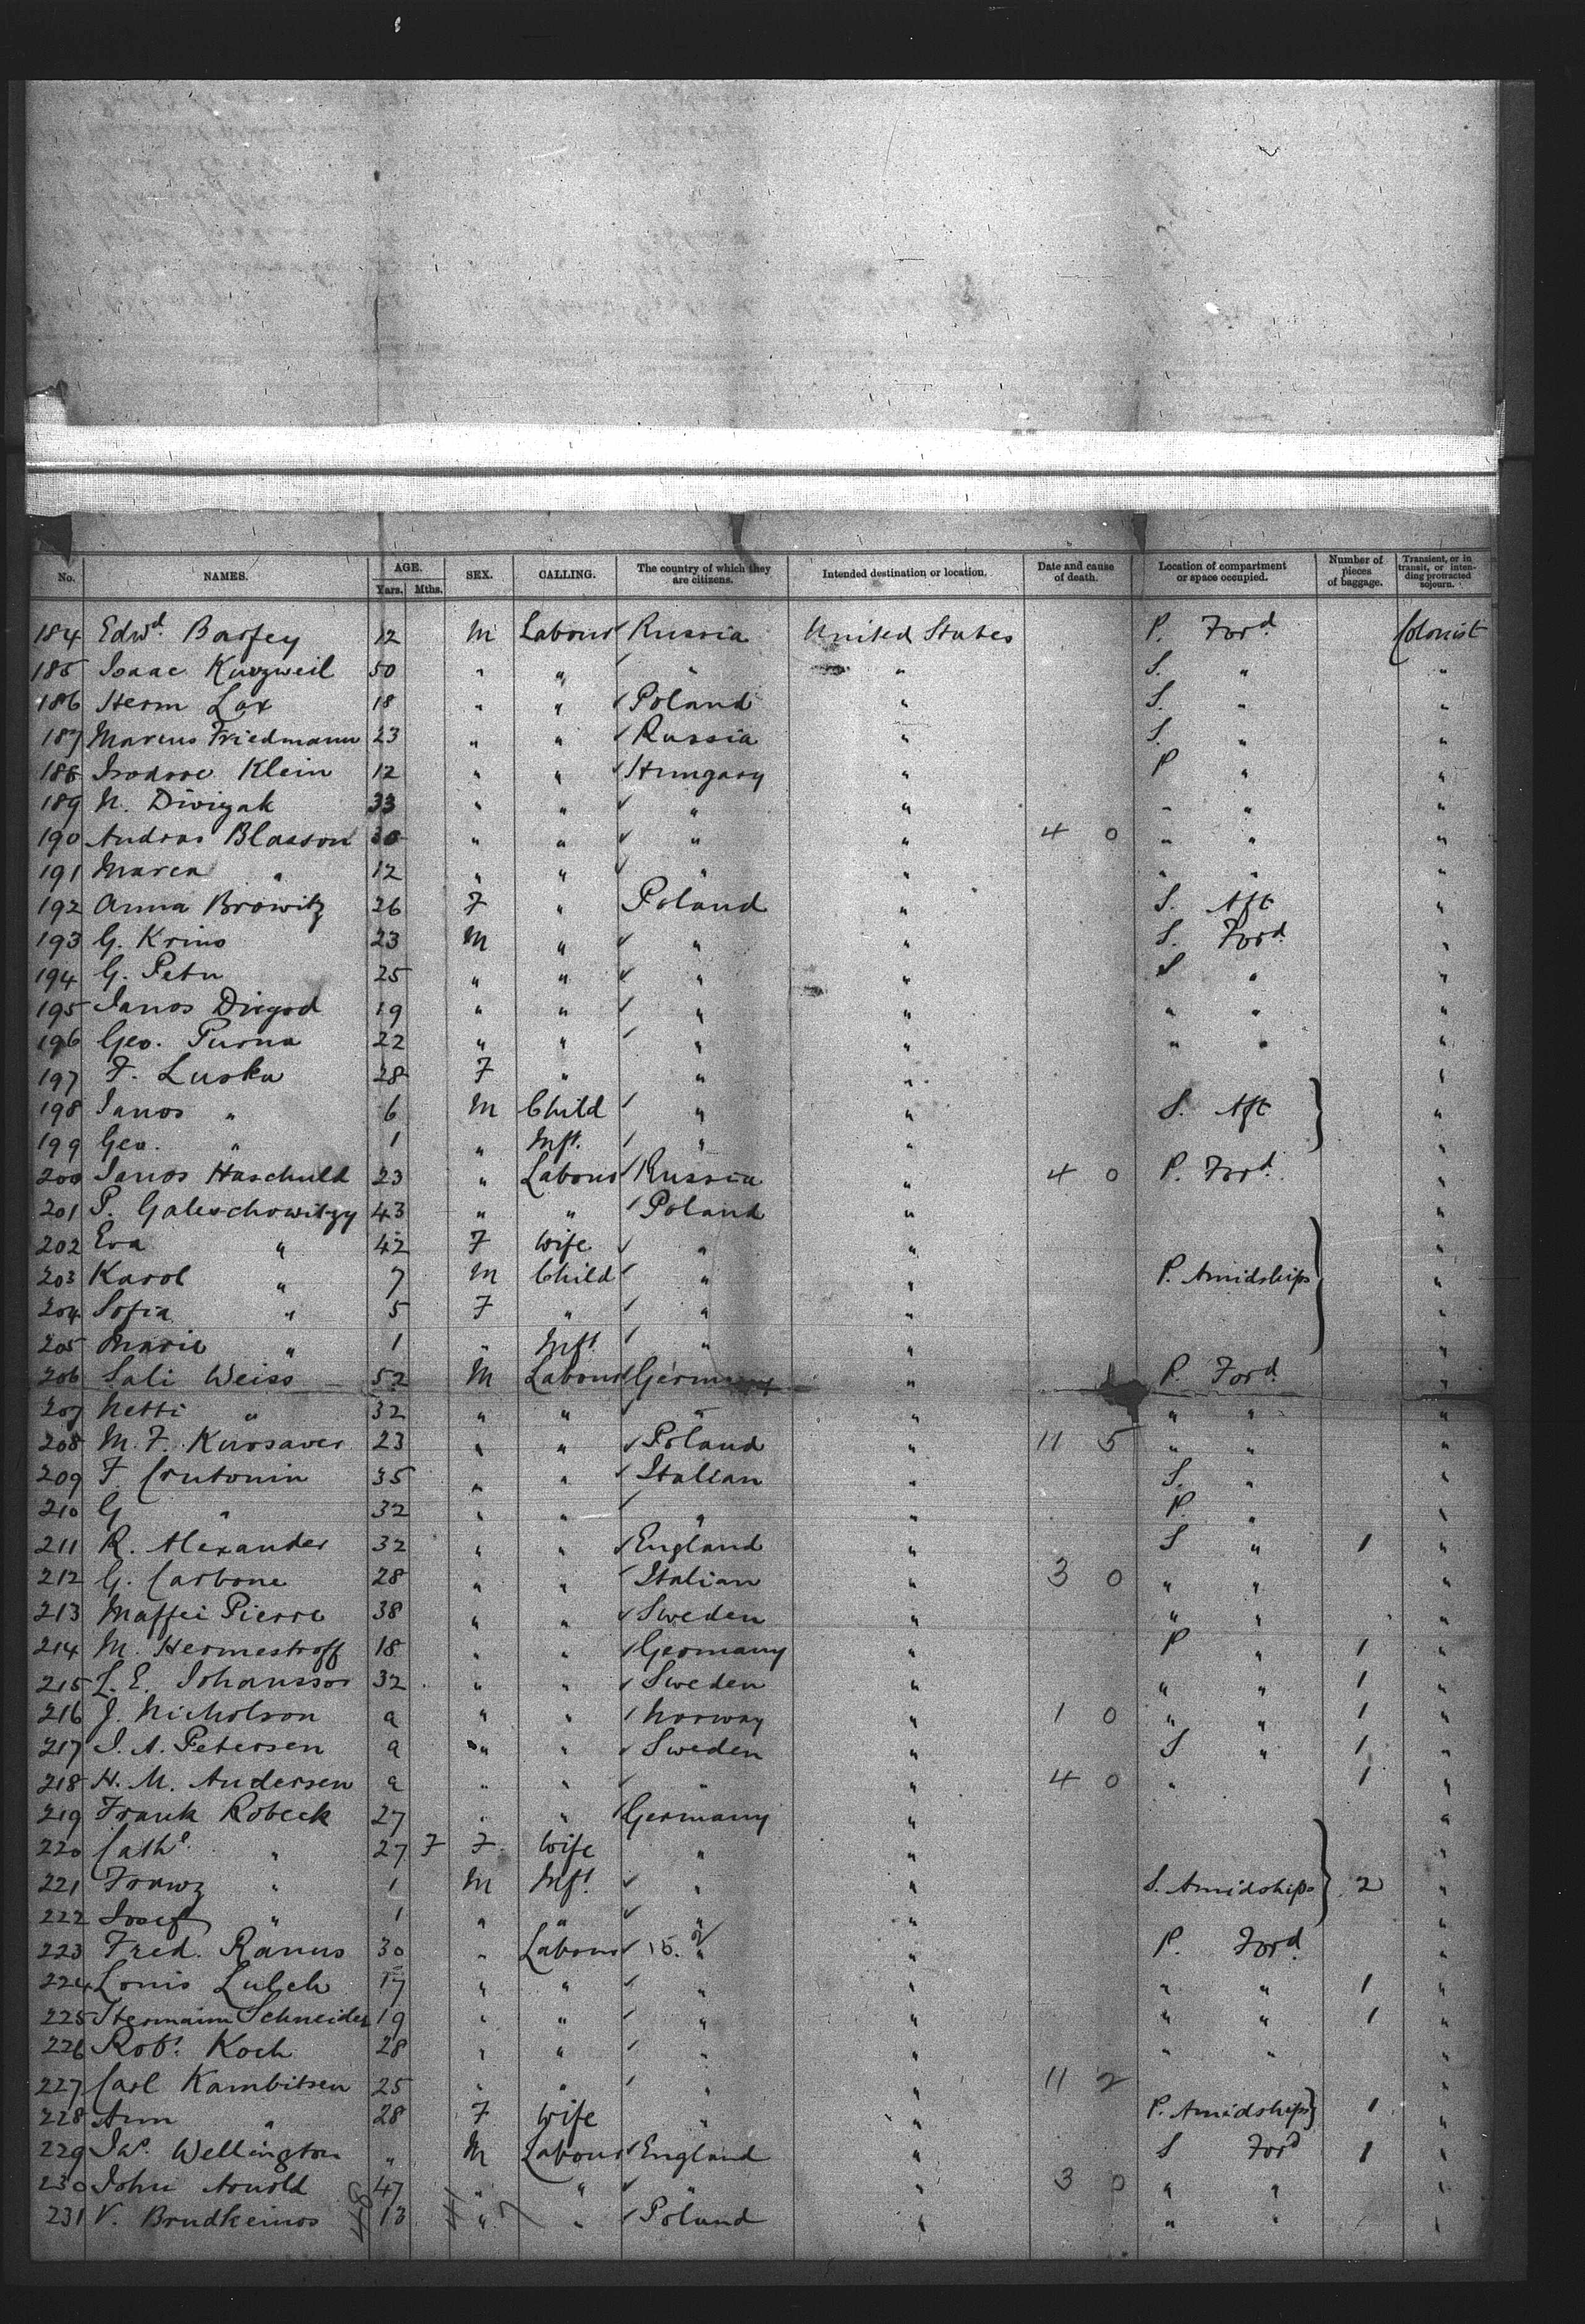 No. NAMES. AGE. Yars. Mths. SEX. CALLING. The country of which they are citizens. Intended destination or location. Date and cause of death. Location of compartment or space occupied. Number of pieces of baggage. Transient, or in transit, or intending protracted sojourn.
184 Edwd. Barfey 12 M Labour Russia United States P. Ford. Colonist
185 Isaac Kurzweil 50 " " " " S. " "
186 Herm Lax 18 " " Poland " S. " "
187 Marcus Friedmann 23 " " Russia " S. " "
188 Isodore Klein 12 " " Hungary " P " "
189 N. Diwizak 33 " " " " " " "
190 Andras Blasson 30 " " " " 4 0 " " "
191 Marca " 12 " " " " " " "
192 Anna Browitz 26 F " Poland " S. Aft "
193 G. Krino 23 M " " " S. Ford. "
194 G. Petu 25 " " " " S " "
195 Janos Diegod 19 " " " " " " "
196 Geo. Purna 22 " " " " " " "
197 F. Luska 28 F " " " "
198 Janos " 6 M Child " " S. Aft "
199 Geo. " 1 " Inft. " " "
200 Janos Haschuld 23 " Labour Russia " 4 0 P. Ford. "
201 P. Galeschowitzy 43 " " Poland " "
202 Eva " 42 F Wife " " "
203 Karol " 7 M Child " " P. Amidships "
204 Sofia " 5 F " " " "
205 Marie " 1 " Inft " " "
206 Sali Weiss 52 M Labour Germany " P. Ford "
207 Netti " 32 " " " " " " "
208 M. F. Kursaver 23 " " Poland " 11 5 " " "
209 F. Crutonin 35 " " Italian " S. " "
210 G " 32 " " " " P. " "
211 R. Alexander 32 " " England " S " 1 "
212 G. Carbone 28 " " Italian " 3 0 " " "
213 Maffei Pierre 38 " " Sweden " " " "
214 M. Hermestroff 18 " " Germany " P " 1 "
215 L. E. Johansson 32 " " Sweden " " " 1 "
216 J. Nicholson a " " Norway " 1 0 " " 1 "
217 J. A. Petersen a " " Sweden " S " 1 "
218 H. M. Andersen a " " " " 4 0 " 1 "
219 Frank Robeck 27 " " Germany " "
220 Cathe. " 27 F F. Wife " " "
221 Franz " 1 M Inft " " S. Amidships 2 "
222 Josef " 1 " " " " "
223 Fred. Ranus 30 " Labour 15. " " P. Ford "
224 Louis Lulch 17 " " " " " " 1 "
225 Hermann Schneider 19 " " " " " " 1 "
226 Robt. Koch 28 " " " " " " "
227 Carl Kambitsen 25 " " " " 11 2 "
228 Ann " 28 F Wife " " P. Amidships 1 "
229 Jas. Wellington " M Labour England " S Ford 1 "
230 John Arnold 47 " " " " 3 0 " " "
231 V. Brudkeinos 13 " " Poland " " " "